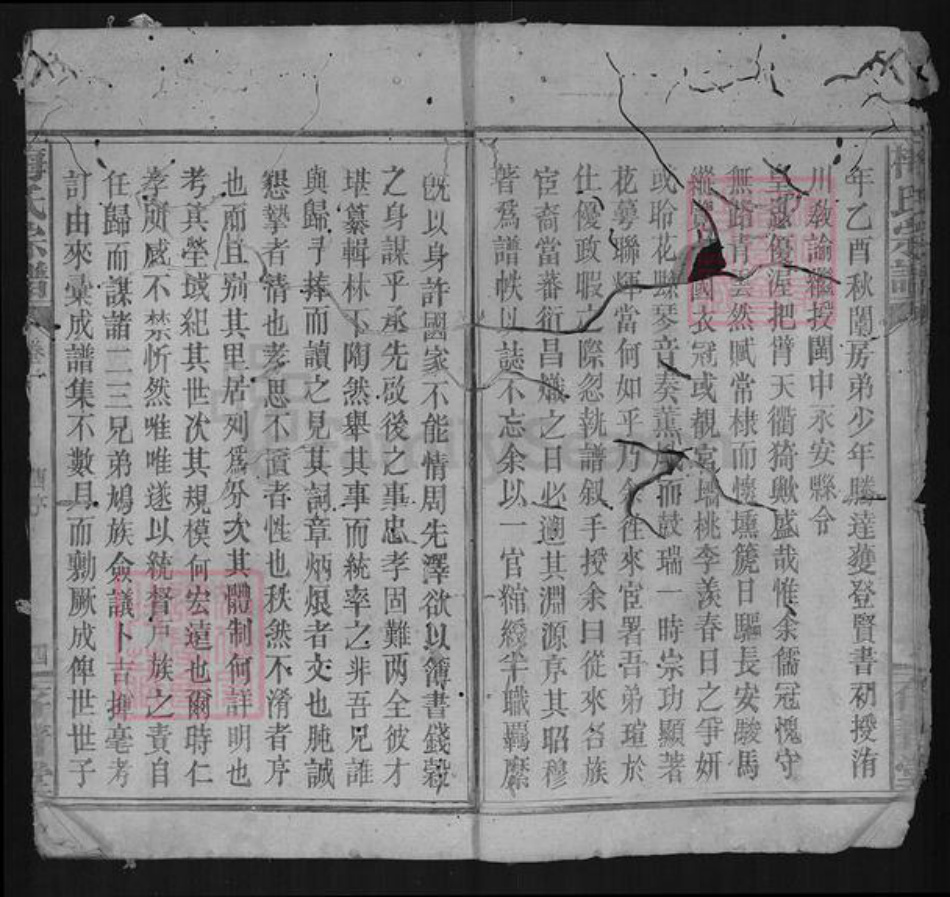 年乙酉秋闈房弟少年勝達獲登賢書初授洧
川教諭繼授閩中永安縣令
皇恩優渥把臂天衢猗歟盛哉惟余儒冠愧守
無路青雲然賦常棣而懷壎篪日驅長安駿馬
國衣冠或觀宮墻桃李羨春日之爭妍
或聆花縣琴音奏薰風而鼓瑞一時宗功顯著
花萼聯輝當何如乎乃余往來宦署吾弟瑄於
仕優政暇之際忽執譜叙手授余曰從來名族
宦裔當蕃衍昌熾之日必遡其淵源序其昭穆
著爲譜帙以誌不忘余以一官綰綬半職羈縻
旣以身許國家不能情周先澤欲以簿書錢穀
之身謀乎承先啟後之事忠孝固難两全彼才
堪纂輯林下陶然舉其事而統率之非吾兄誰
與歸予捧而讀之見其詞章炳烺者文也肫誠
懇摯者情也孝思不匱者性也秩然不淆者序
也而且别其里居列爲分次其體制何詳明也
考其塋域紀其世次其規模何宏遠也爾時仁
孝所感不禁忻然唯唯遂以統督户族之責自
任歸而謀諸二三兄弟鳩族僉議卜吉揮毫考
訂由來彙成譜集不數月而勷厥成俾世世子
梅氏宗譜
卷
四